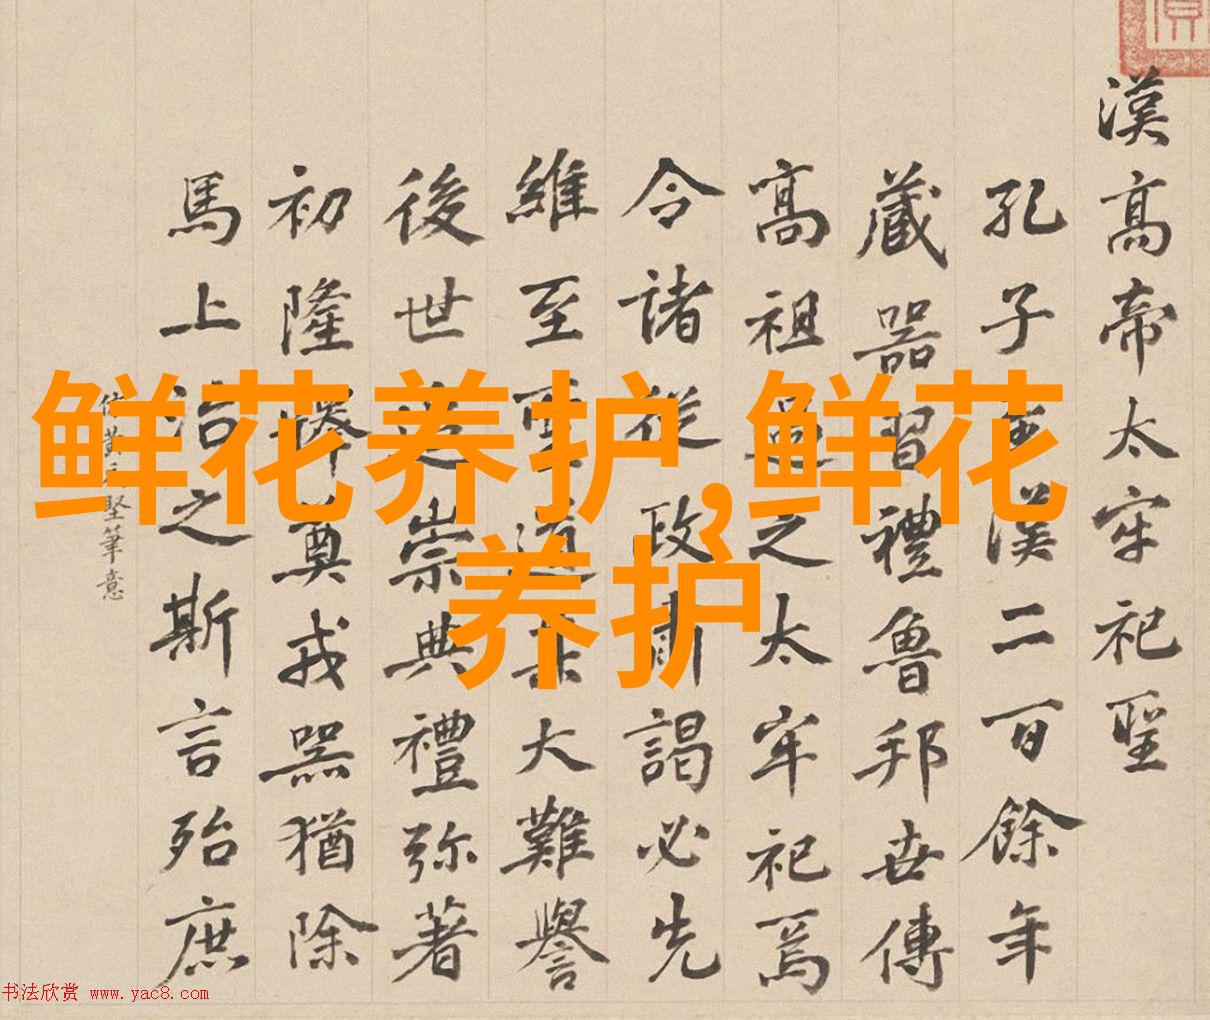 漢高帝太牢祀聖
孔子至漢二百餘年
藏器習禮魯邦世傳
高祖過之太牢祀焉
令諸從政肅謁必先
維至聖道其大難譽
後世迭崇典禮弥著
初隆釋奠戎器猶除
馬上治之斯言殆庶
仿黃堅筆意
鲜花养护,鲜花
养护
书法欣赏 www.yac8.com